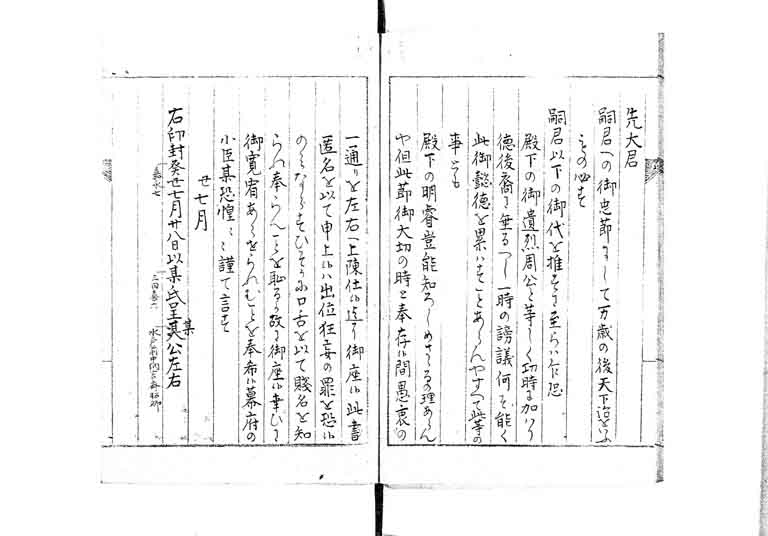 先大君
嗣君への御忠節にして万歳の後天下
の必す
嗣君以下の御代を推すに至らハ乍恐
殿下の御遺烈周公と等しく功時に加ハり
徳後裔に垂るへし一時の謗議何そ能く
此御懿徳を累ハすことあらんやすへて此等の
事とも
殿下の明睿豈能知ろしめさゝるの理あらん
や但此節御大切の時と奉存候間愚衷の
一通りを左右へ上陳仕候迄に御座候此書
匿名を以て申上候ハ出位狂妄の罪を恐候
のみならすひそかに口舌を以て賤名を知
られ奉らんことを恥るか故に御座候幸ひに
御寛宥あらせられむことを奉希候幕府の
小臣某恐惶々々謹て言す
丑七月
右印封癸丑七月廿八日以某氏呈某公左右
嘉永七
水戸前中納言斉昭卿